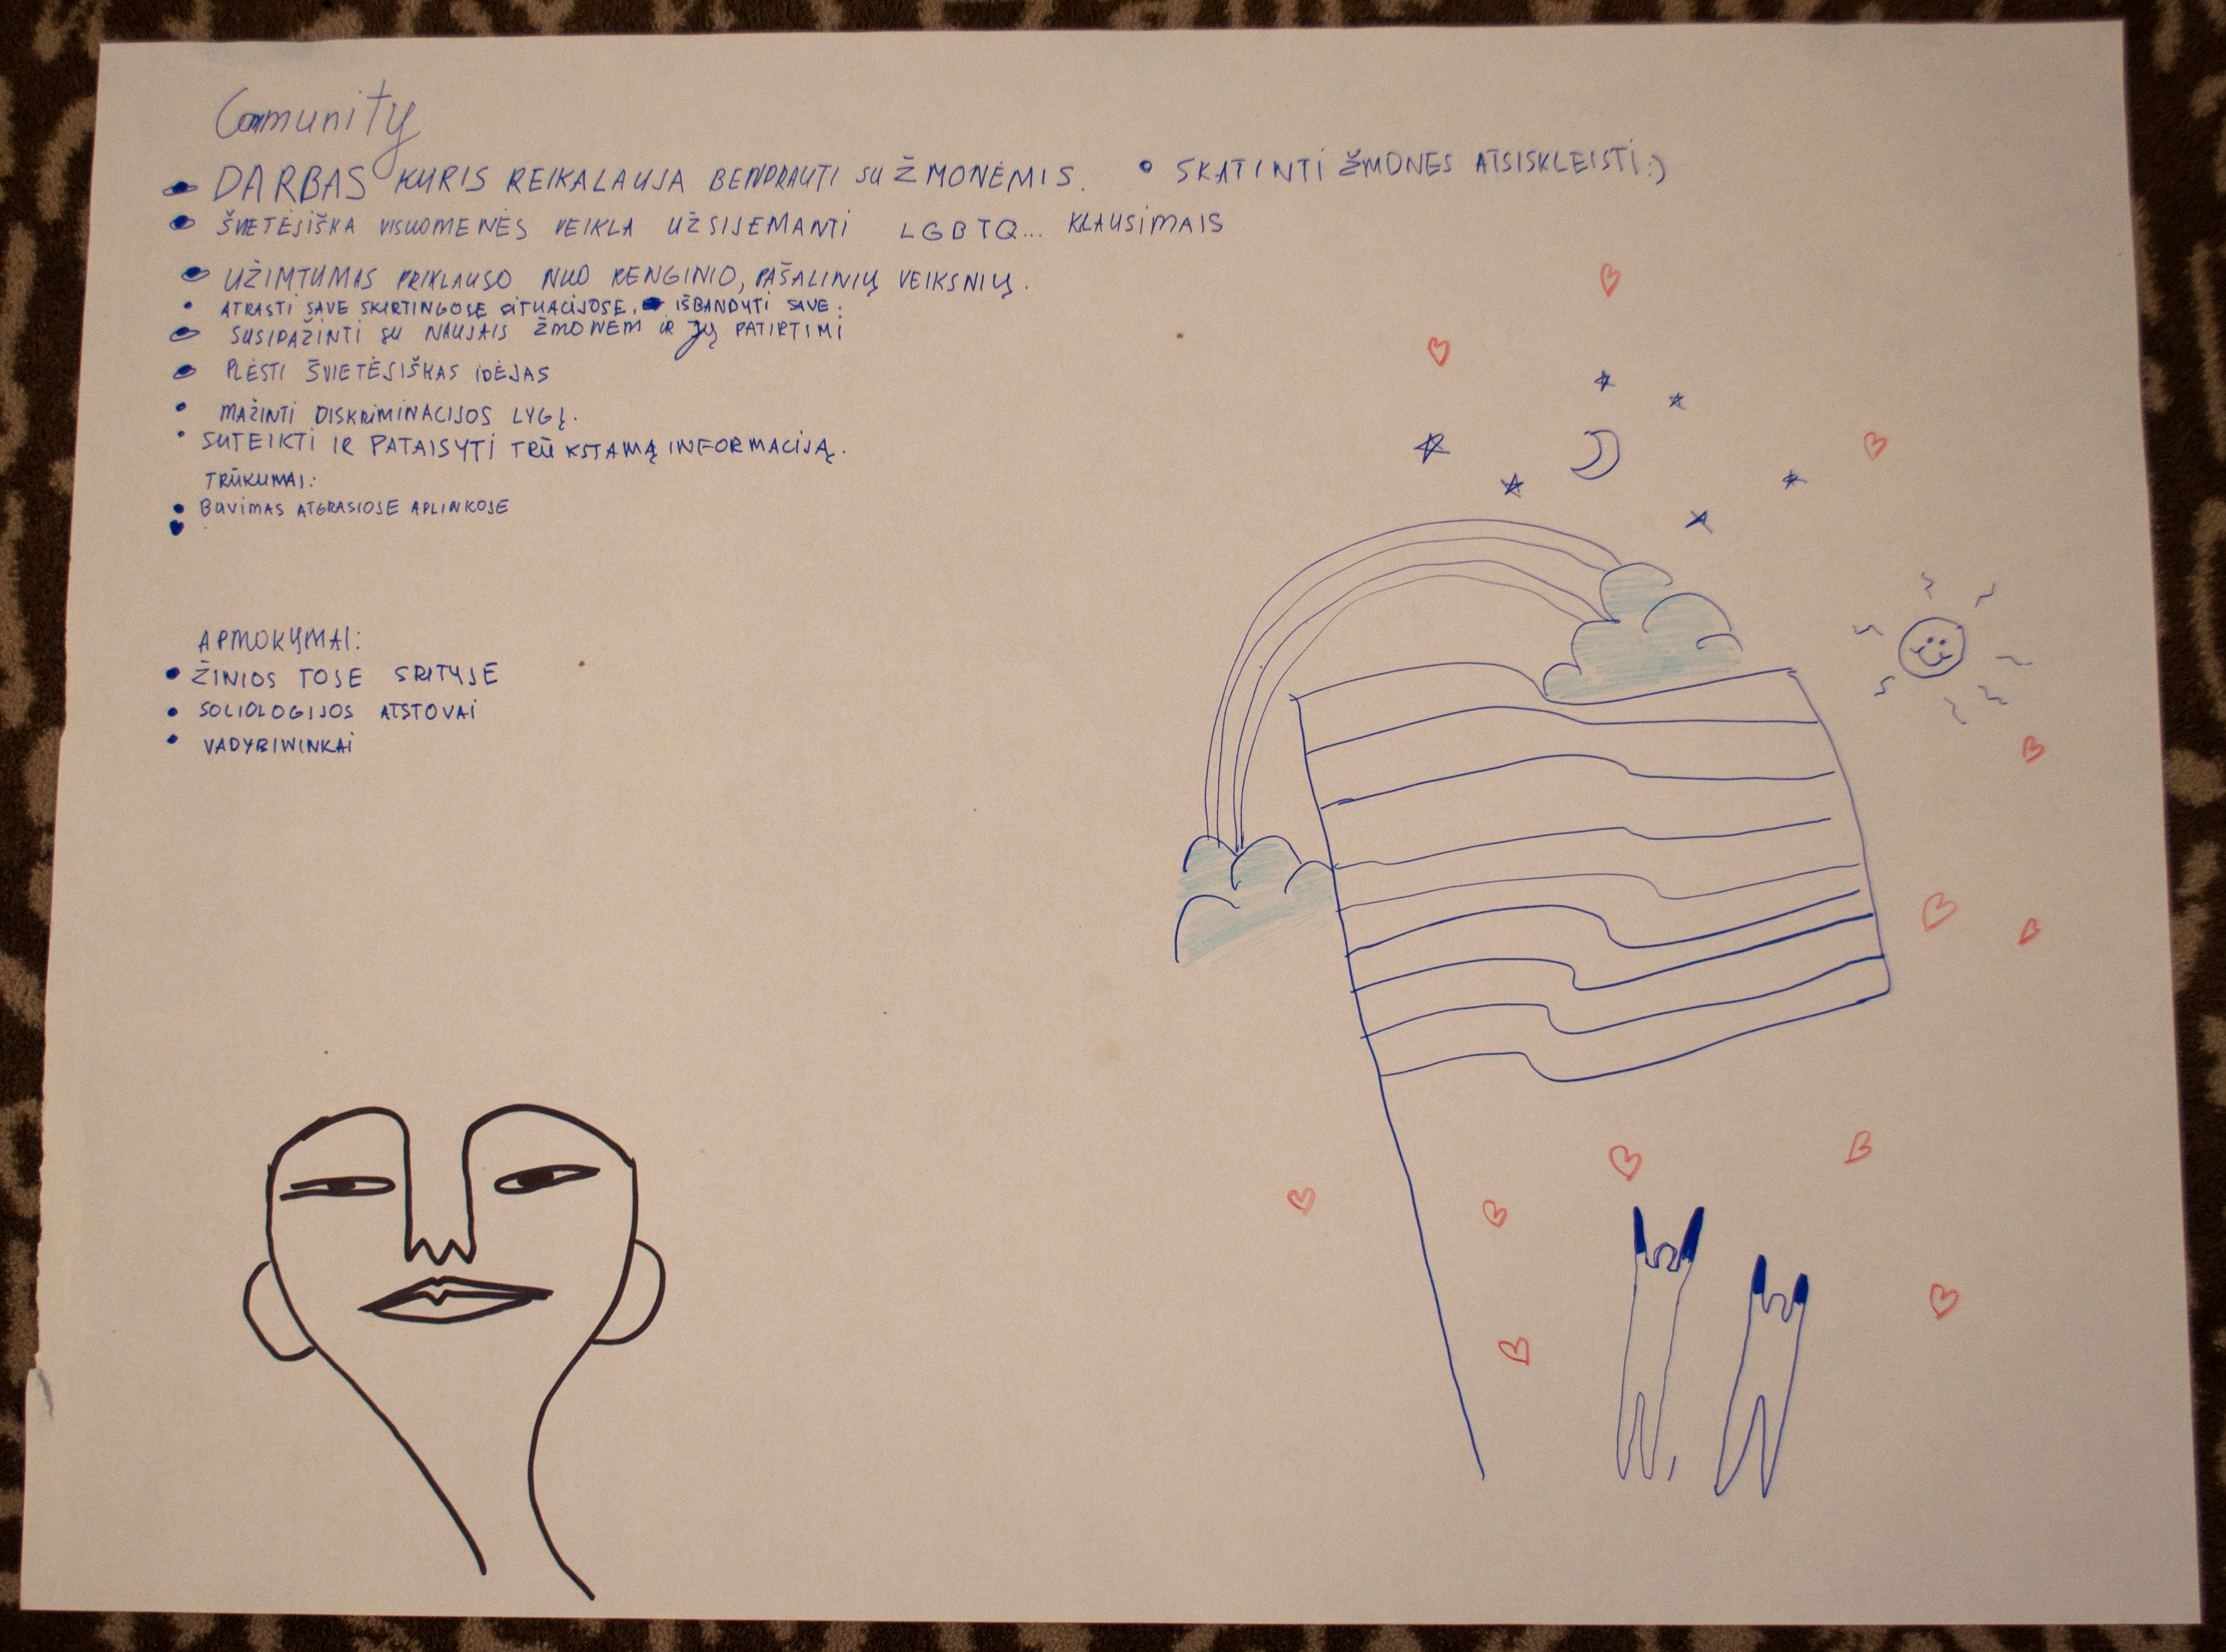 Community
• DARBAS KURIS REIKALAUJA BENDRAUTI SU ŽMONĖMIS. • SKATINTI ŽMONES ATSISKLEISTI:)
• ŠVIETĖJIŠKA VISUOMENĖS VEIKLA UŽSIJEMANTI LGBTQ... KLAUSIMAIS
• UŽIMTUMAS PRIKLAUSO NUO RENGINIO, PAŠALINIŲ VEIKSNIŲ.
• ATRASTI SAVE SKIRTINGOSE SITUACIJOSE, IŠBANDYTI SAVE.
• SUSIPAŽINTI SU NAUJAIS ŽMONEM IR JŲ PATIRTIMI
• PLĖSTI ŠVIETĖJIŠKAS IDĖJAS
• MAŽINTI DISKRIMINACIJOS LYGĮ.
• SUTEIKTI IR PATAISYTI TRŪKSTAMĄ INFORMACIJĄ.
TRŪKUMAI:
• BUVIMAS ATGRASIOSE APLINKOSE
APMOKYMAI:
• ŽINIOS TOSE SRITYSE
• SOCIOLOGIJOS ATSTOVAI
• VADYBIWINKAI